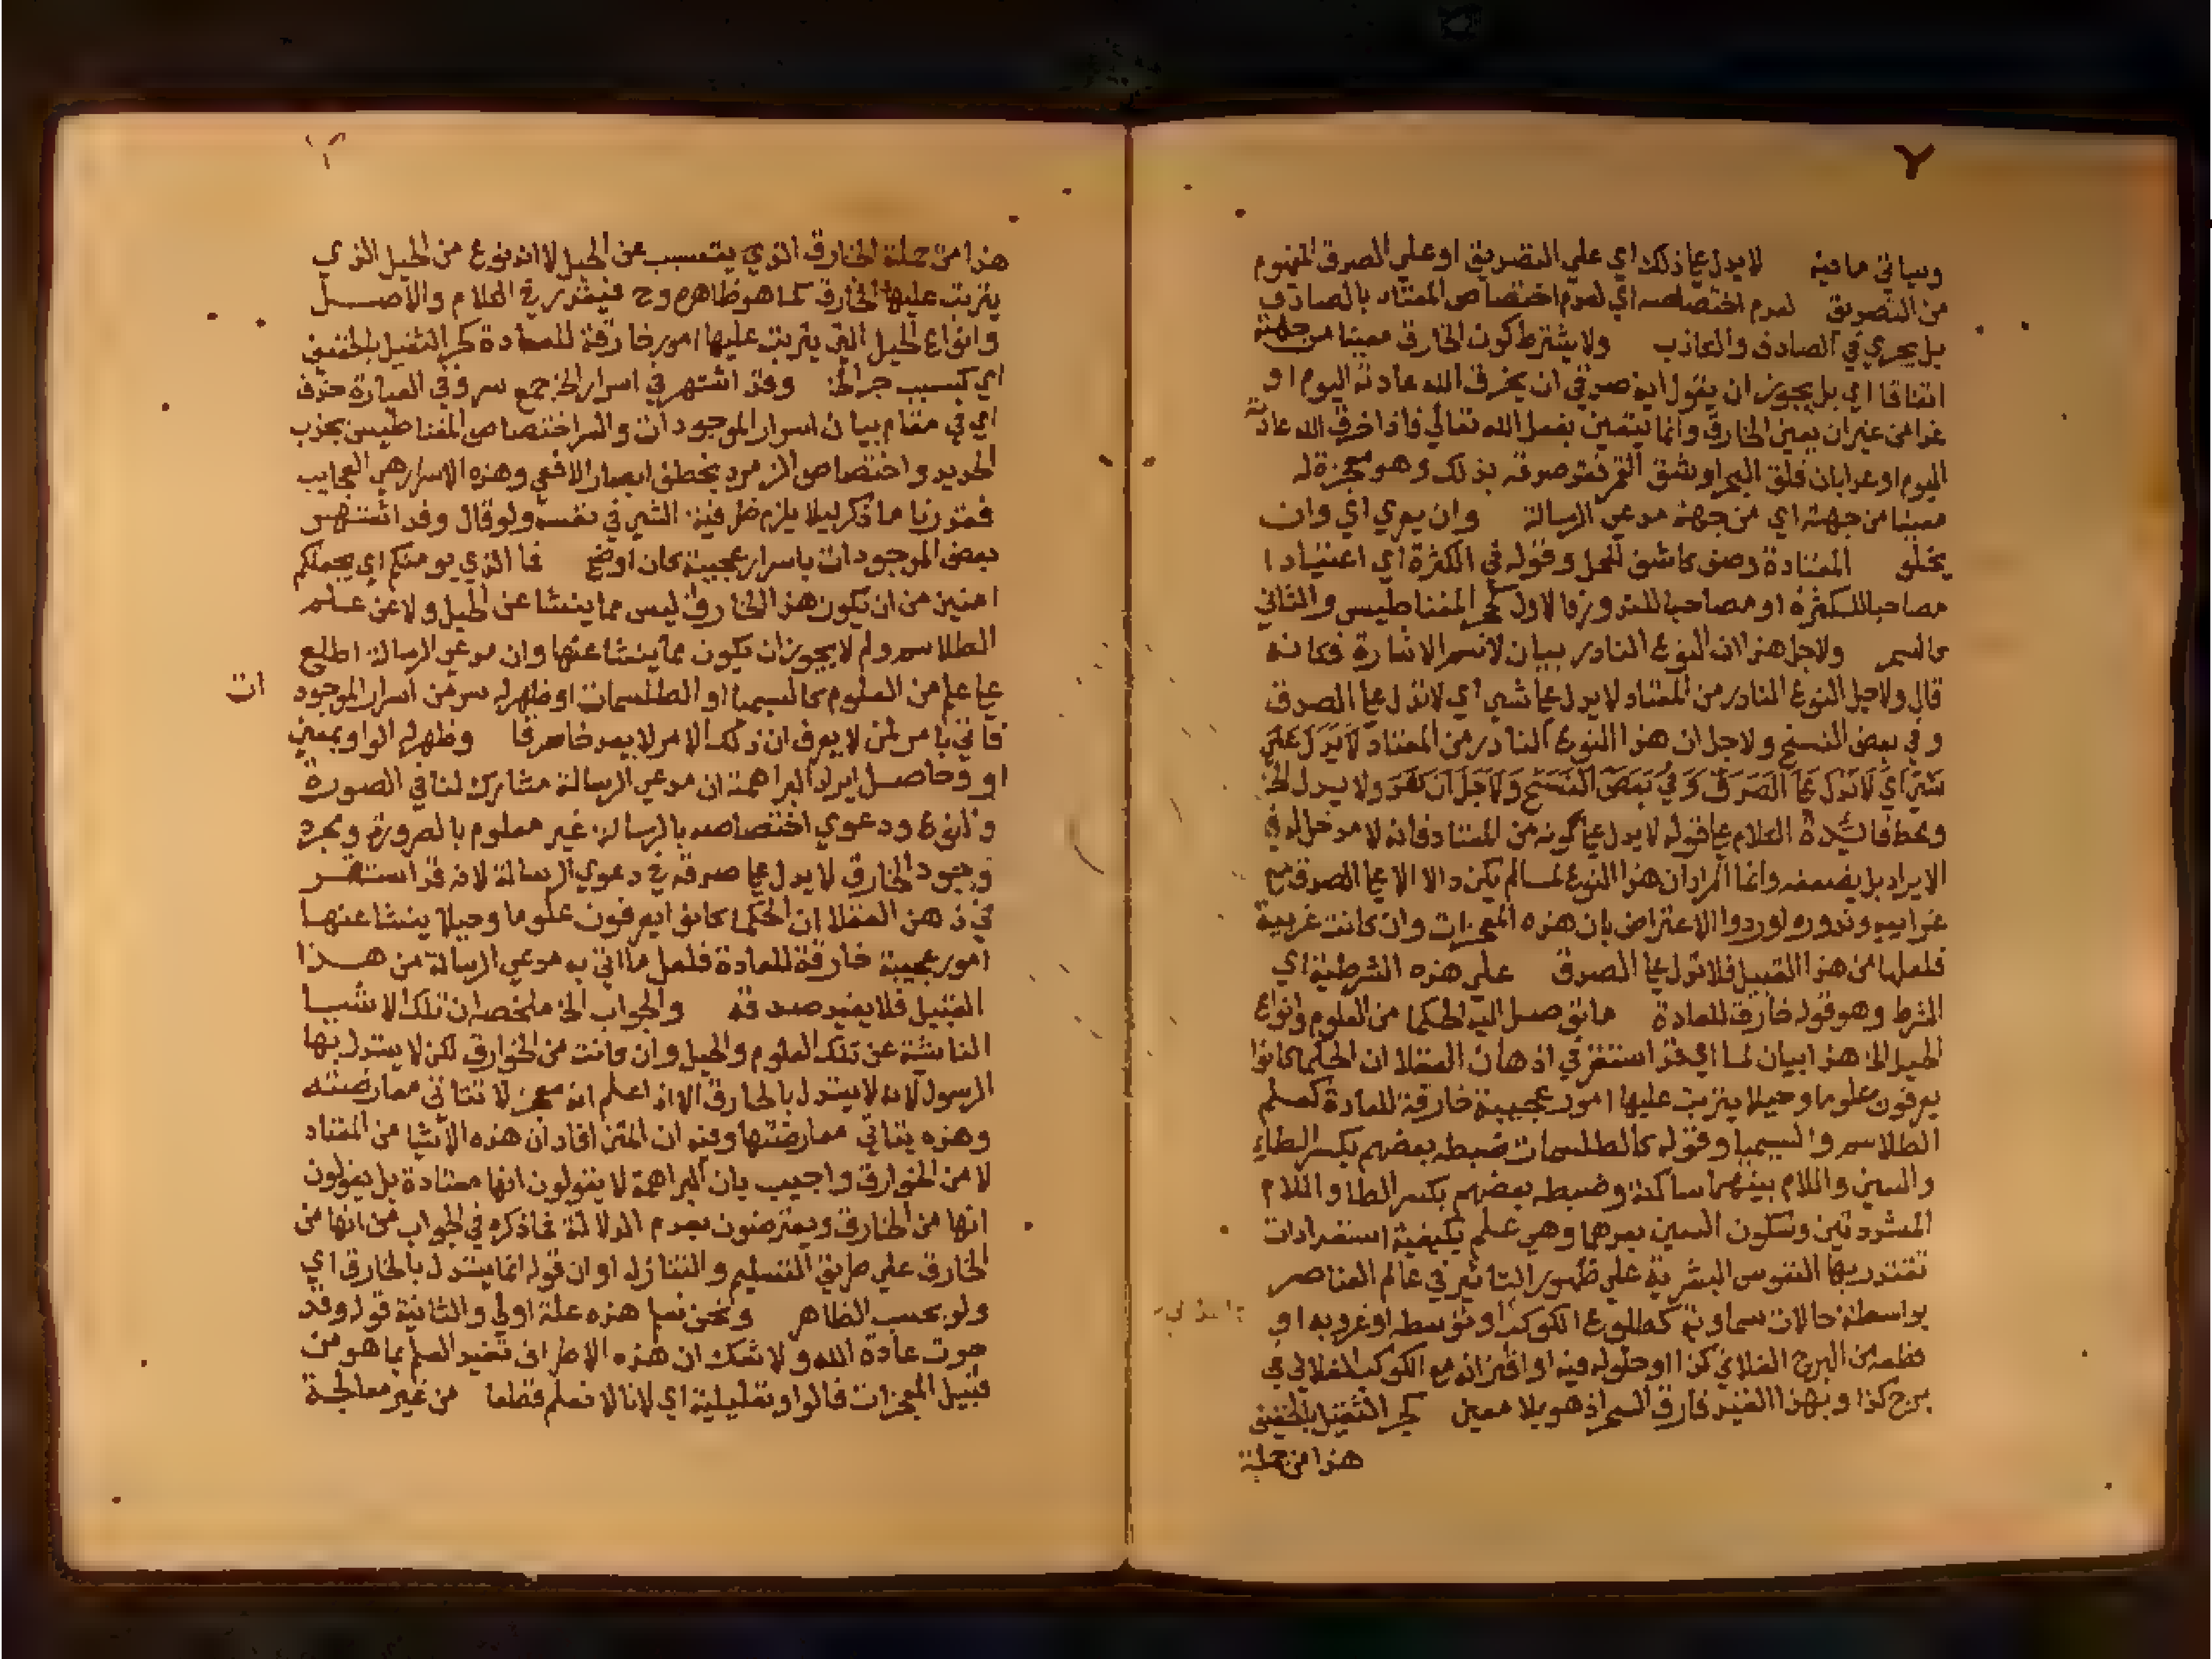 وسياتي ما فيه لا يدل علي ذلك اي علي التصديق او علي الصدق المفهوم
من التصديق لعدم اختصاصه اي لعدم اختصاص المعتاد بالصادق
بل يجري في الصادق والكاذب ولا يشترط كون الخارق معينا من جهته
اتفاقا اي بل يجوز ان يقول اية صدقي ان يخرق الله عادته اليوم او
غدا من غير ان يعين الخارق وانما يتعين بفعل الله تعالي فاذا خرق الله عادته
اليوم او غدا بان فلق البحر او شق القمر صدقه بذلك وهو معجزة له
معينا من جهته اي من جهة مدعي الرسالة وان يعري اي وان
يخلو المعتادة وصف كاشف للمحل وقوله في الكثرة اي اعتيادا
مصاحبا للكثرة او مصاحبا للندور فالاول كجر المغناطيس والثاني
كالسحر ولاجل هذا ان النوع النادر بيان لاسم الاشارة فكانه
قال ولاجل النوع النادر من المعتاد لا يدل علي شي اي لا تدل علي الصدق
وفي بعض النسخ ولاجل ان هذا النوع النادر من المعتاد لا يدل علي
شي اي لا تدل علي الصدق وفي بعض النسخ ولاجل ان ولا يدل الخ
ومحط فائدة الكلام علي قوله لا يدل علي كونه من المعتاد فانه لا مدخل له في
الايراد بل يضعفه وانما المراد ان هذا النوع لما لم يكن دالا الا علي الصدق مع
غرابيه وندوره اوردوا الاعتراض بان هذه المعجزات وان كانت غريبة
فلعلها من هذا القبيل فلا تدل علي الصدق علي هذه الشرطية اي
الشرط وهو قوله خارقة للعادة ما توصل اليه الحكما من العلوم وانواع
الحيل الخ هذا بيان لما اي قد استقر في اذهان العقلا ان الحكما كانوا
يعرفون علوما وحيلا يترتب عليها امور عجيبة خارقة للعادة كعلم
الطلاسم والسيميا وقوله كالطلسمات ضبطه بعضهم بكسر الطاء
والسين واللام بينهما ساكنة وضبطه بعضهم بكسر الطا واللام
المشددتين وسكون السين بعدها وهي علم بكيفية استعدادات
تقتدر بها النفوس البشرية علي ظهور التاثير في عالم العناصر
بواسطة حالات سماوية كطلوع الكوكب او توسطه او غروبه او
قطعه من البرج الفلاني كذا او حلوله فيه او اقترانه مع الكوكب الفلاني في
برج كذا وبهذا القيد فارق السحر اذ هو بلا معين كجر الثقيل بالخفيف
هذا من جملة
هذا من جملة الخارق الذي يتسبب عن الحيل لا انه نوع من الحيل الذي
يترتب عليها الخارق كما هو ظاهره وح فيقدر في الكلام والاصل
وانواع الحيل التي يترتب عليها امور خارقة للعادة كجر الثقيل بالخفيف
اي كسبب جر الخ وقد اشتهر في اسرار الخ جمع سر وفي العبارة حذف
اي في مقام بيان اسرار الموجودات والسر اختصاص المغناطيس بجذب
الحديد واختصاص الزمرد بخطف ابصار الافعي وهذه الاسرار هي العجايب
فقدرنا ما ذكر ليلا يلزم ظرفية الشي في نفسه ولو قال وقد اشتهر
بعض الموجودات باسرار عجيبة كان اوضح فما الذي يومنكم اي يجعلكم
امنين من ان يكون هذا الخارق ليس مما ينشا عن الحيل ولا عن علم
الطلاسم ولم لا يجوز ان يكون مما ينشا عنها وان مدعي الرسالة اطلع
علي علم من العلوم كالسيميا او الطلسمات او ظهر له سر من اسرار الموجود
ات
فاتي بامر لمن لا يعرف ان ذلك الامر لا يعد خارقا وظهر له الواو بمعني
او وحاصل ايراد البراهمة ان مدعي الرسالة مشارك لنا في الصورة
والنوع ودعوي اختصاصه بالرسالة غير معلوم بالضرورة ومجرد
وجود الخارق لا يدل علي صدقه في دعوي الرسالة لانه قد استقر
في ذهن العقلا ان الحكما كانوا يعرفون علوما وحيلا ينشا عنها
امور عجيبة خارقة للعادة فلعل ما اتي به مدعي الرسالة من هذا
القبيل فلا يفيد صدقه والجواب الخ ملخصه ان تلك الاشيا
الناشية عن تلك العلوم والحيل وان كانت من الخوارق لكن لا يستدل بها
الرسول لانه لا يستدل بالخارق الا اذا علم انه معجز لا تتاتي معارضته
وهذه يتاتي معارضتها وفيه ان المتن افاد ان هذه الاشيا من المعتاد
لا من الخوارق واجيب بان البراهمة لا يقولون انها معتادة بل يقولون
انها من الخارق ويعترضون بعدم الدلالة فما ذكره في الجواب من انها من
الخارق علي طريق التسليم والتنازل او ان قوله انما يستدل بالخارق اي
ولو بحسب الظاهر ونحن نسا هذه علة اولي والثانية قوله وقد
جرت عادة الله ولا شك ان هذه الاطراف تفيد العلم بما هو من
قبيل المعجزات فالواو تعليلية اي لانا لا نعلم قطعا من غير معالجة